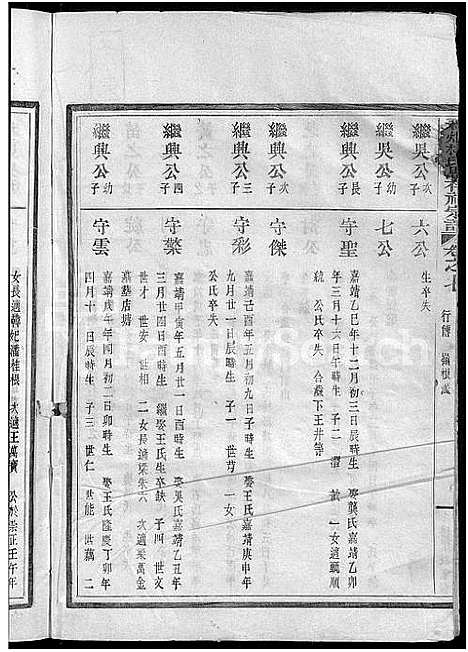 卷之七
行傳
繼興公次子 六公
生卒失
繼吳公幼子 七公
繼興公長子 守聖
嘉靖乙巳年十二月初三日辰時生 娶龔氏嘉靖乙卯
年三月十六日辰時生 子二 一女適
統 公氏卒失 合葬下王井
繼興公次子 守傑
繼興公三子 守彩
嘉靖壬酉年五月初九日子時生 娶王氏嘉靖庚申年
九月廿一日辰時生 子一 世 一女
公氏卒失
繼興公四子 守榮
嘉靖甲寅年五月廿一日酉時生 娶吳氏嘉靖乙丑年
三月廿四日酉時生 繼娶王氏生卒缺 子四 世文
世 世安 世相 二女長適朱六 次適萬金
墓葬店塘
繼興公幼子 守雲
嘉靖庚年四月初二日卯時生 娶王氏隆慶丁卯年
四月十一日辰時生 子三 世仁 世能 世 二
女長適韓 潘桂根 次適王萬 公於崇正壬午年